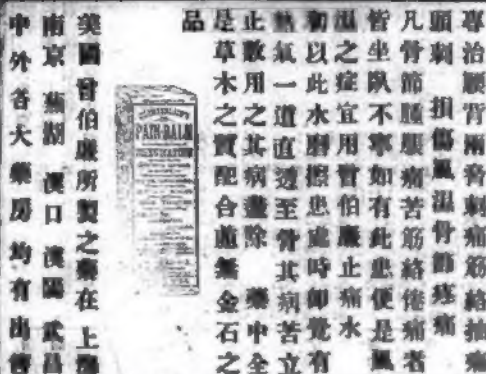 專治腰背兩脅刺痛筋絡抽痛
頭刺 損傷風濕骨節疼痛
凡骨節腫脹痛苦筋絡倦痛者
皆坐臥不寧如有此患便是風
濕之症宜用曾伯廉止痛水
初以此水磨擦患處時卽覺有
熱氣一道直透至骨其病苦立
止敷用之其病盡除 藥中全
是草木之質配合並無金石之
品
PAIN-BALM
美國曾伯廉所製之藥在上海
南京 蕪湖 漢口 漢陽 武昌
中外各大藥房均有出售